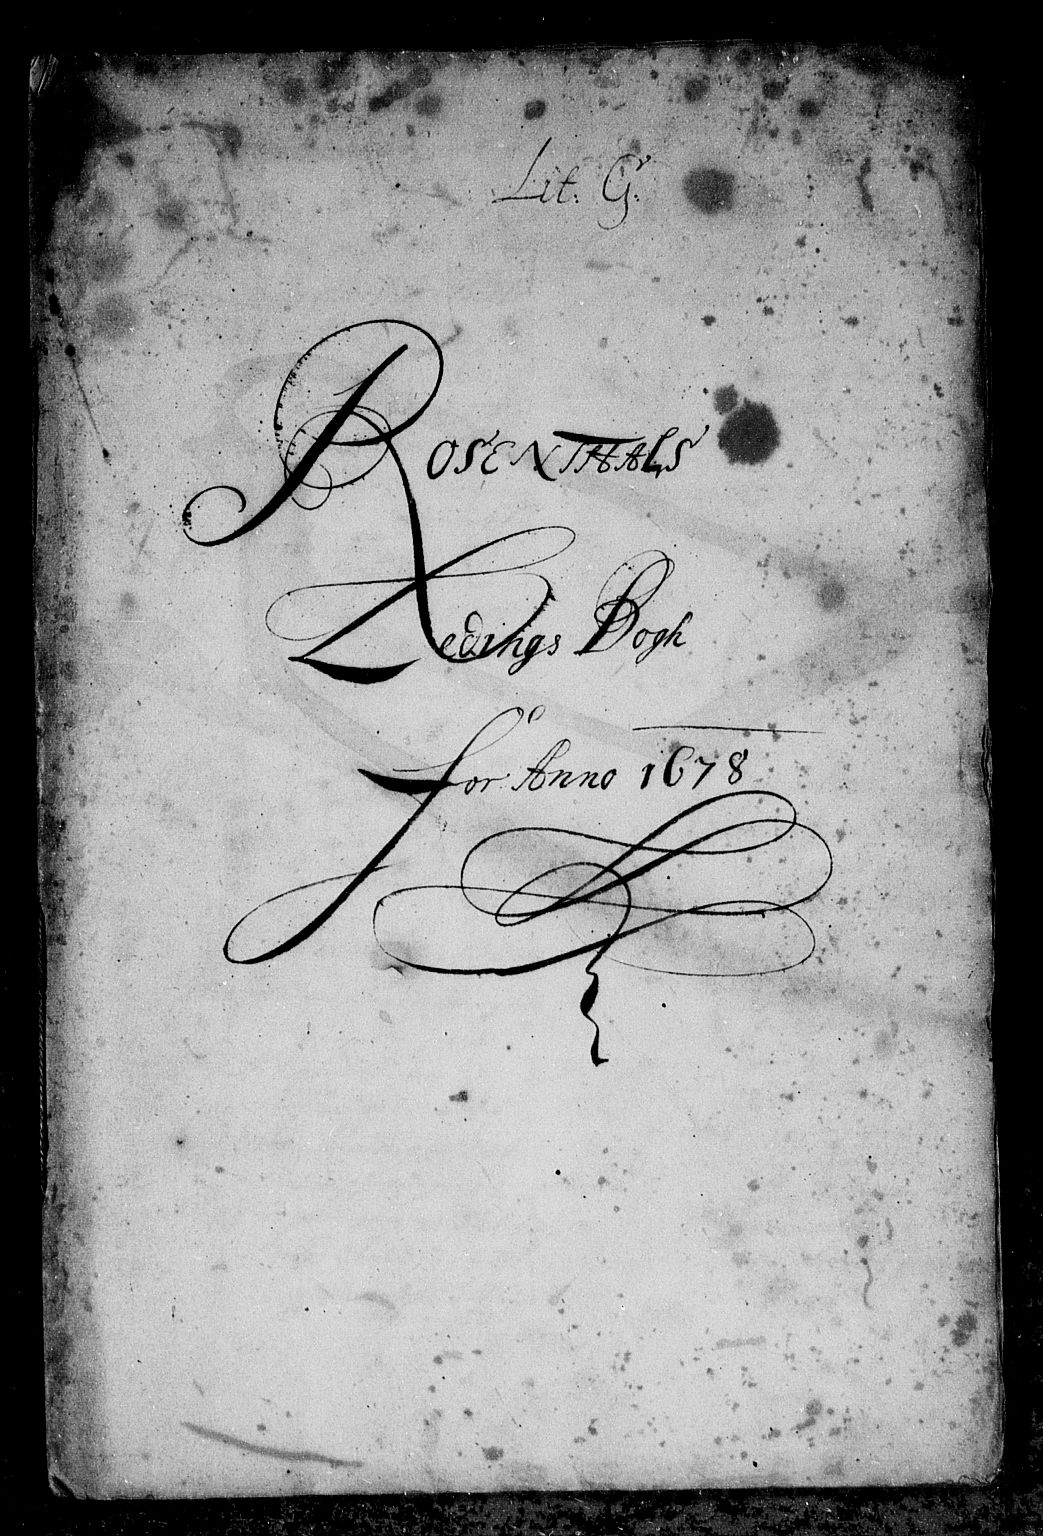 Lit. G.
ROSENTHALS
Ledings Bogh
for Anno 1678